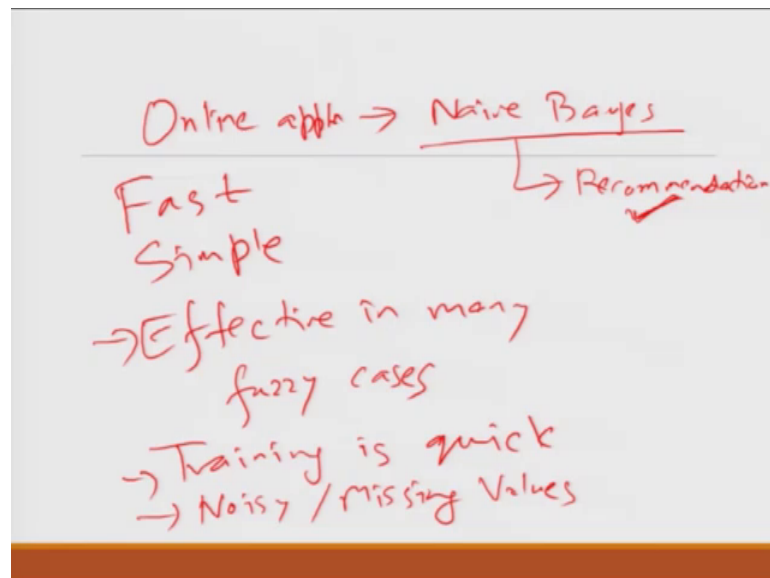 Online appln → Naive Bayes
↳ Recommendation
Fast
Simple
→ Effective in many
fuzzy cases
→ Training is quick
→ Noisy / Missing Values